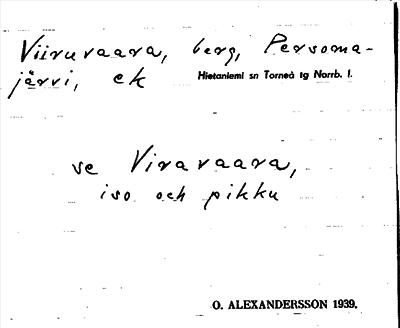 Viiruvaara, berg, Persoma-
järvi, ek Hietaniemi sn Torneå tg Norrb. l.
se Viravaara,
iso och pikku
O. ALEXANDERSSON 1939.